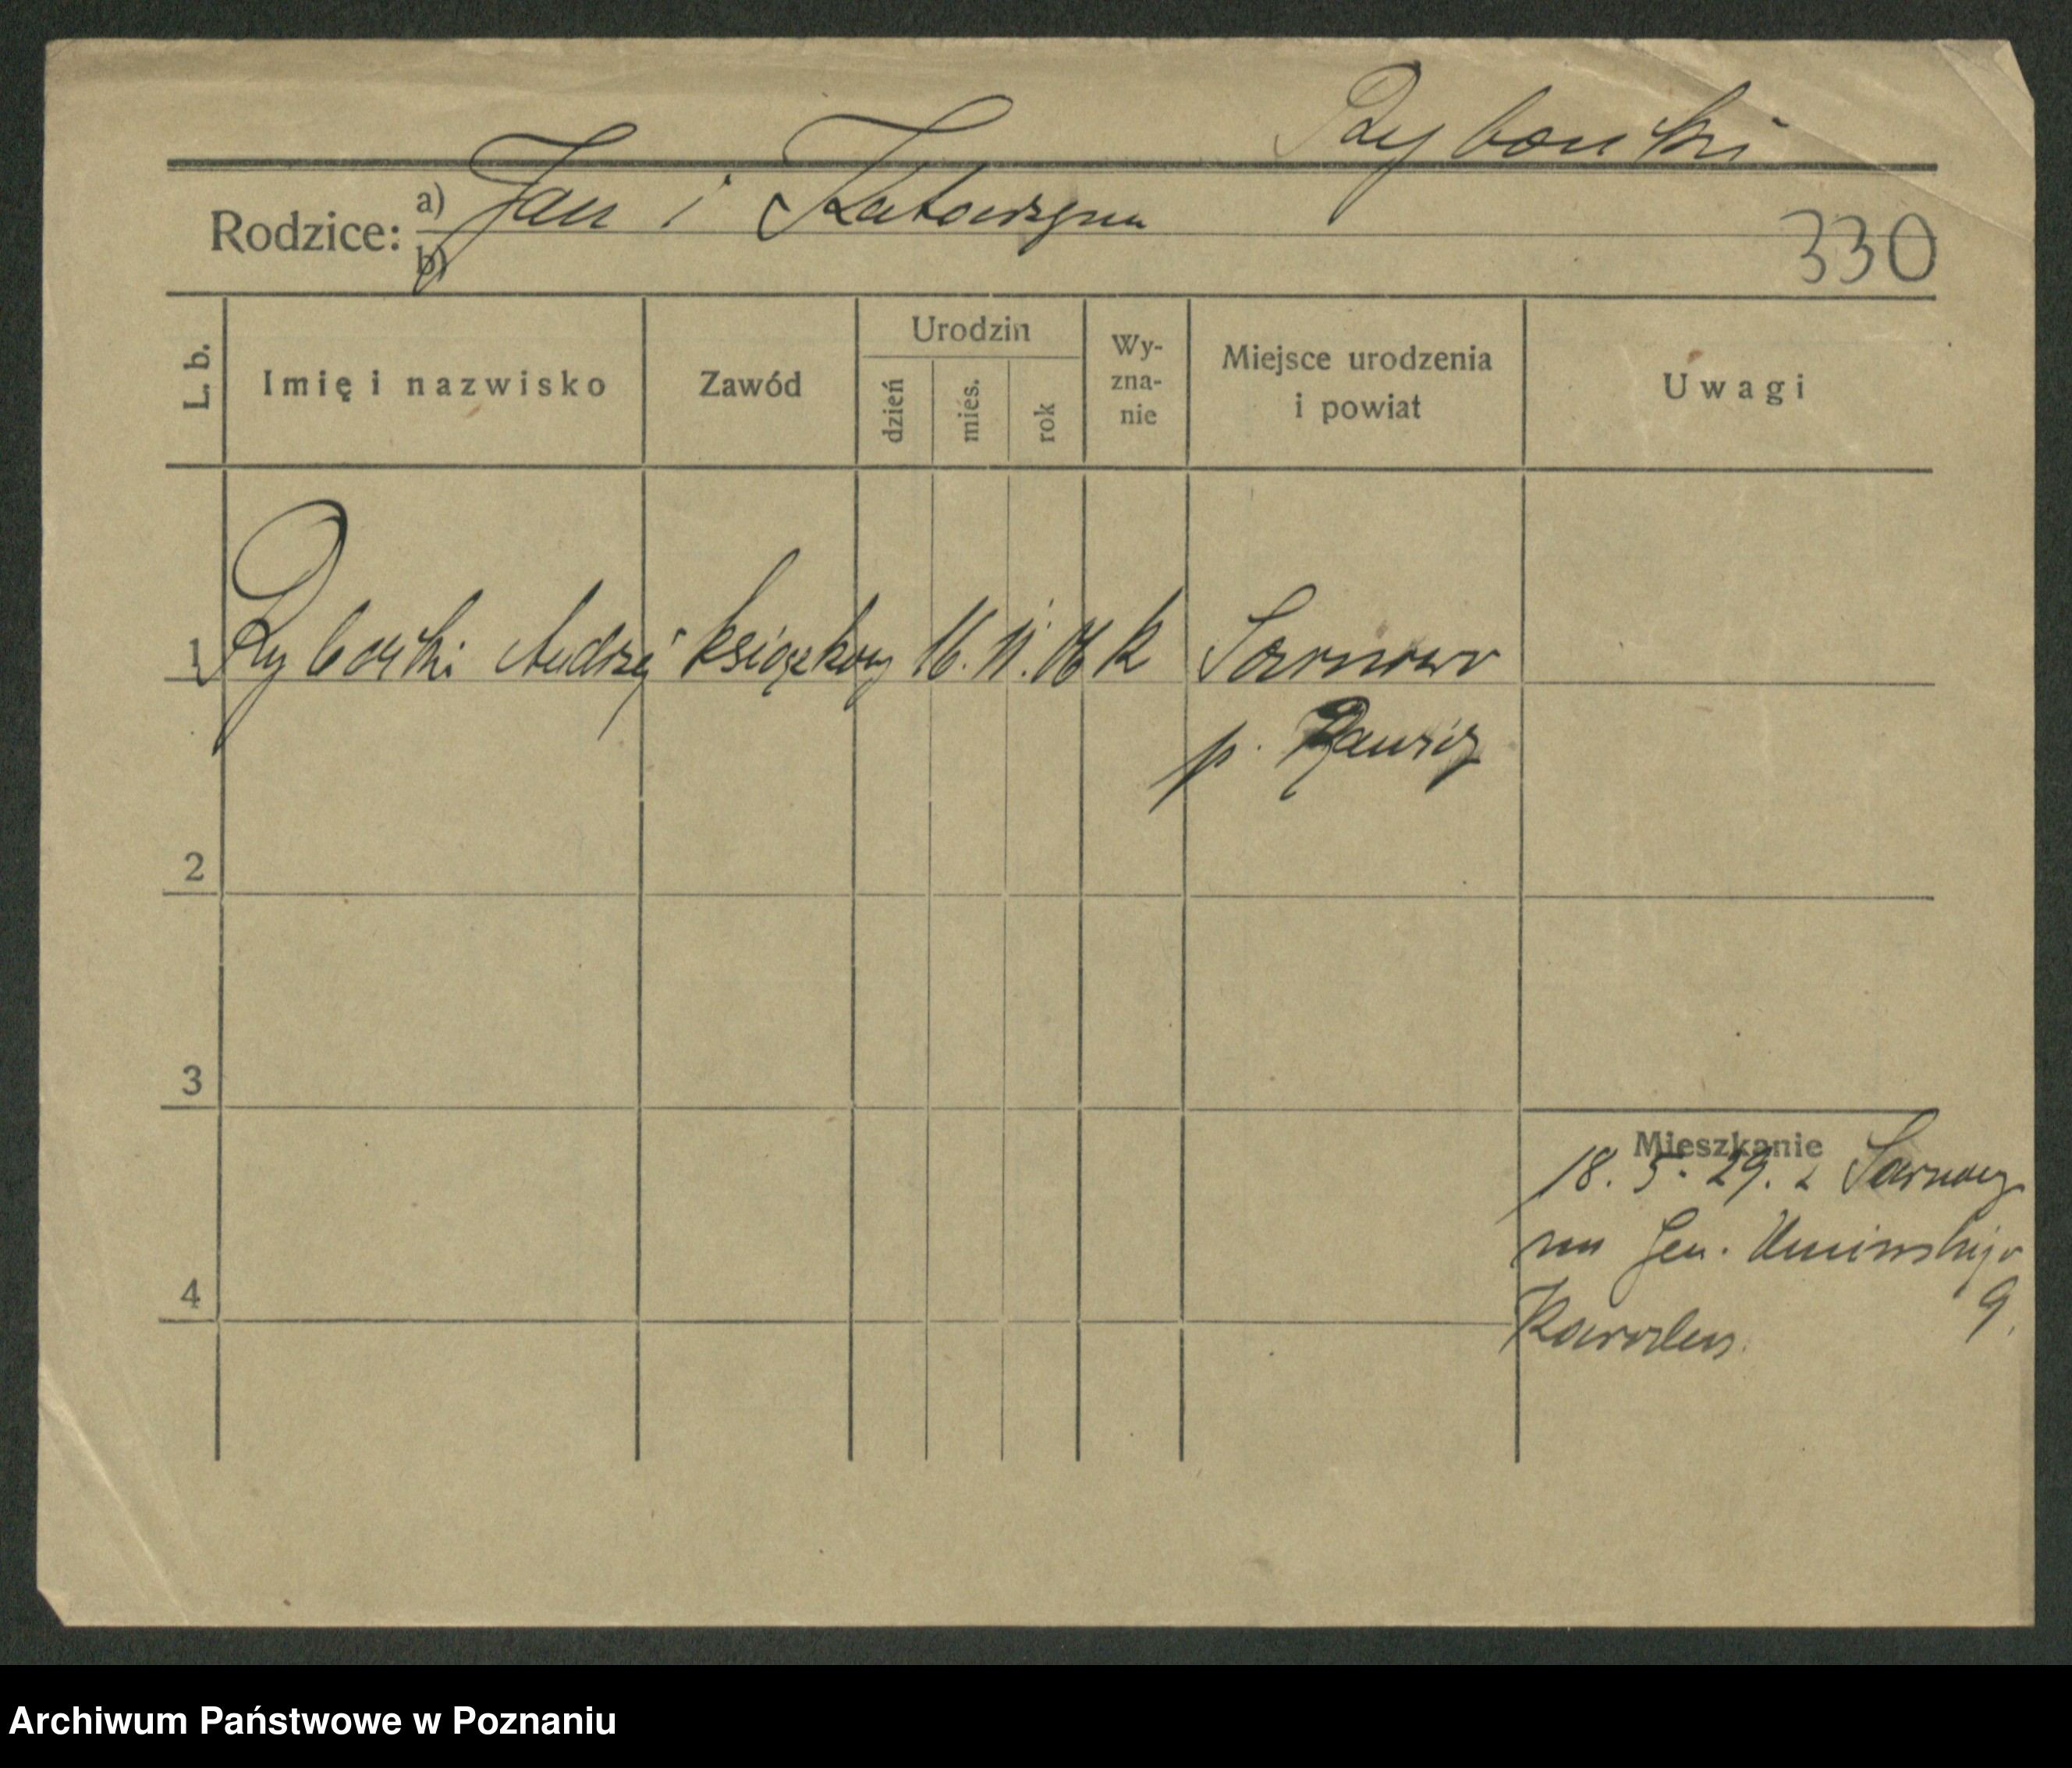 Rybarski
Rodzice: a) Jan i Katarzyna
b)
330
L. b.
Imię i nazwisko
Zawód
Urodzin
dzień
mies.
rok
Wy-
zna-
nie
Miejsce urodzenia
i powiat
Uwagi
1 Rybarski Andrzej książkowy 16. 11. 06 k Sarnowo
p. Rawicz
2
3
4
Mieszkanie
18. 5. 29. z Sarnowy
na Gen. Umińskiego
9.